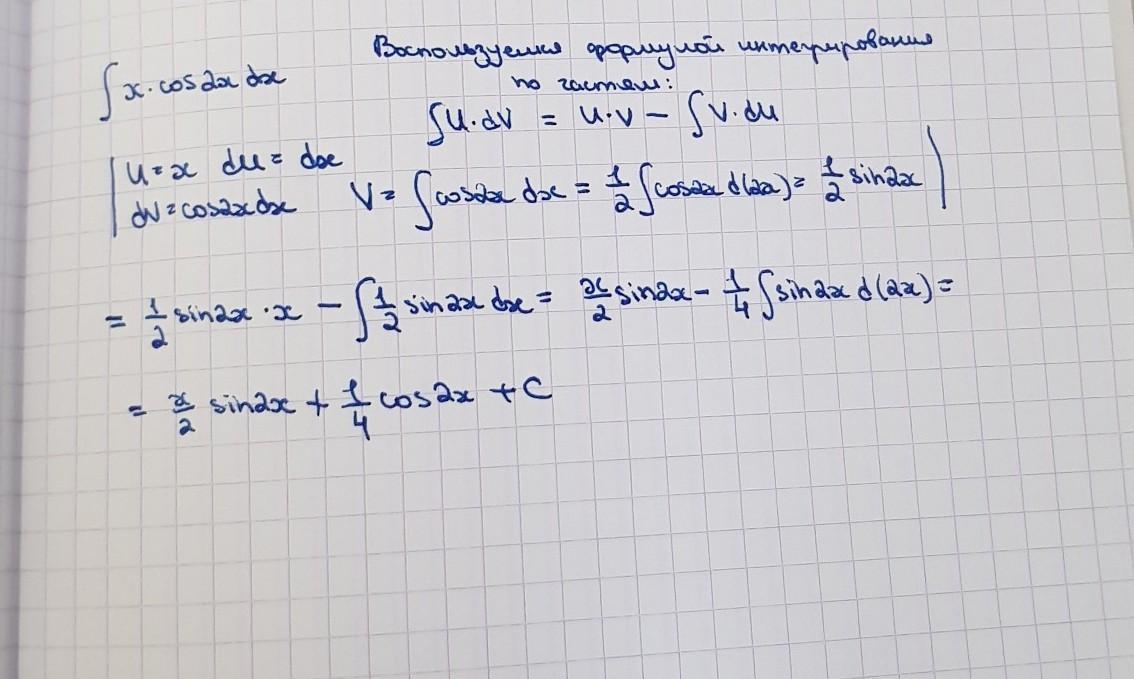 Воспользуемся формулой интегрирования
по частям:
∫ x · cos2x dx
∫ U · dV = U · V − ∫ V · dU
| U = x dU = dx
dV = cos2x dx V = ∫ cos2x dx = 1/2 ∫ cos2x d(2x) = 1/2 sin2x |
= 1/2 sin2x · x − ∫ 1/2 sin2x dx = x/2 sin2x − 1/4 ∫ sin2x d(2x) =
= x/2 sin2x + 1/4 cos2x + C